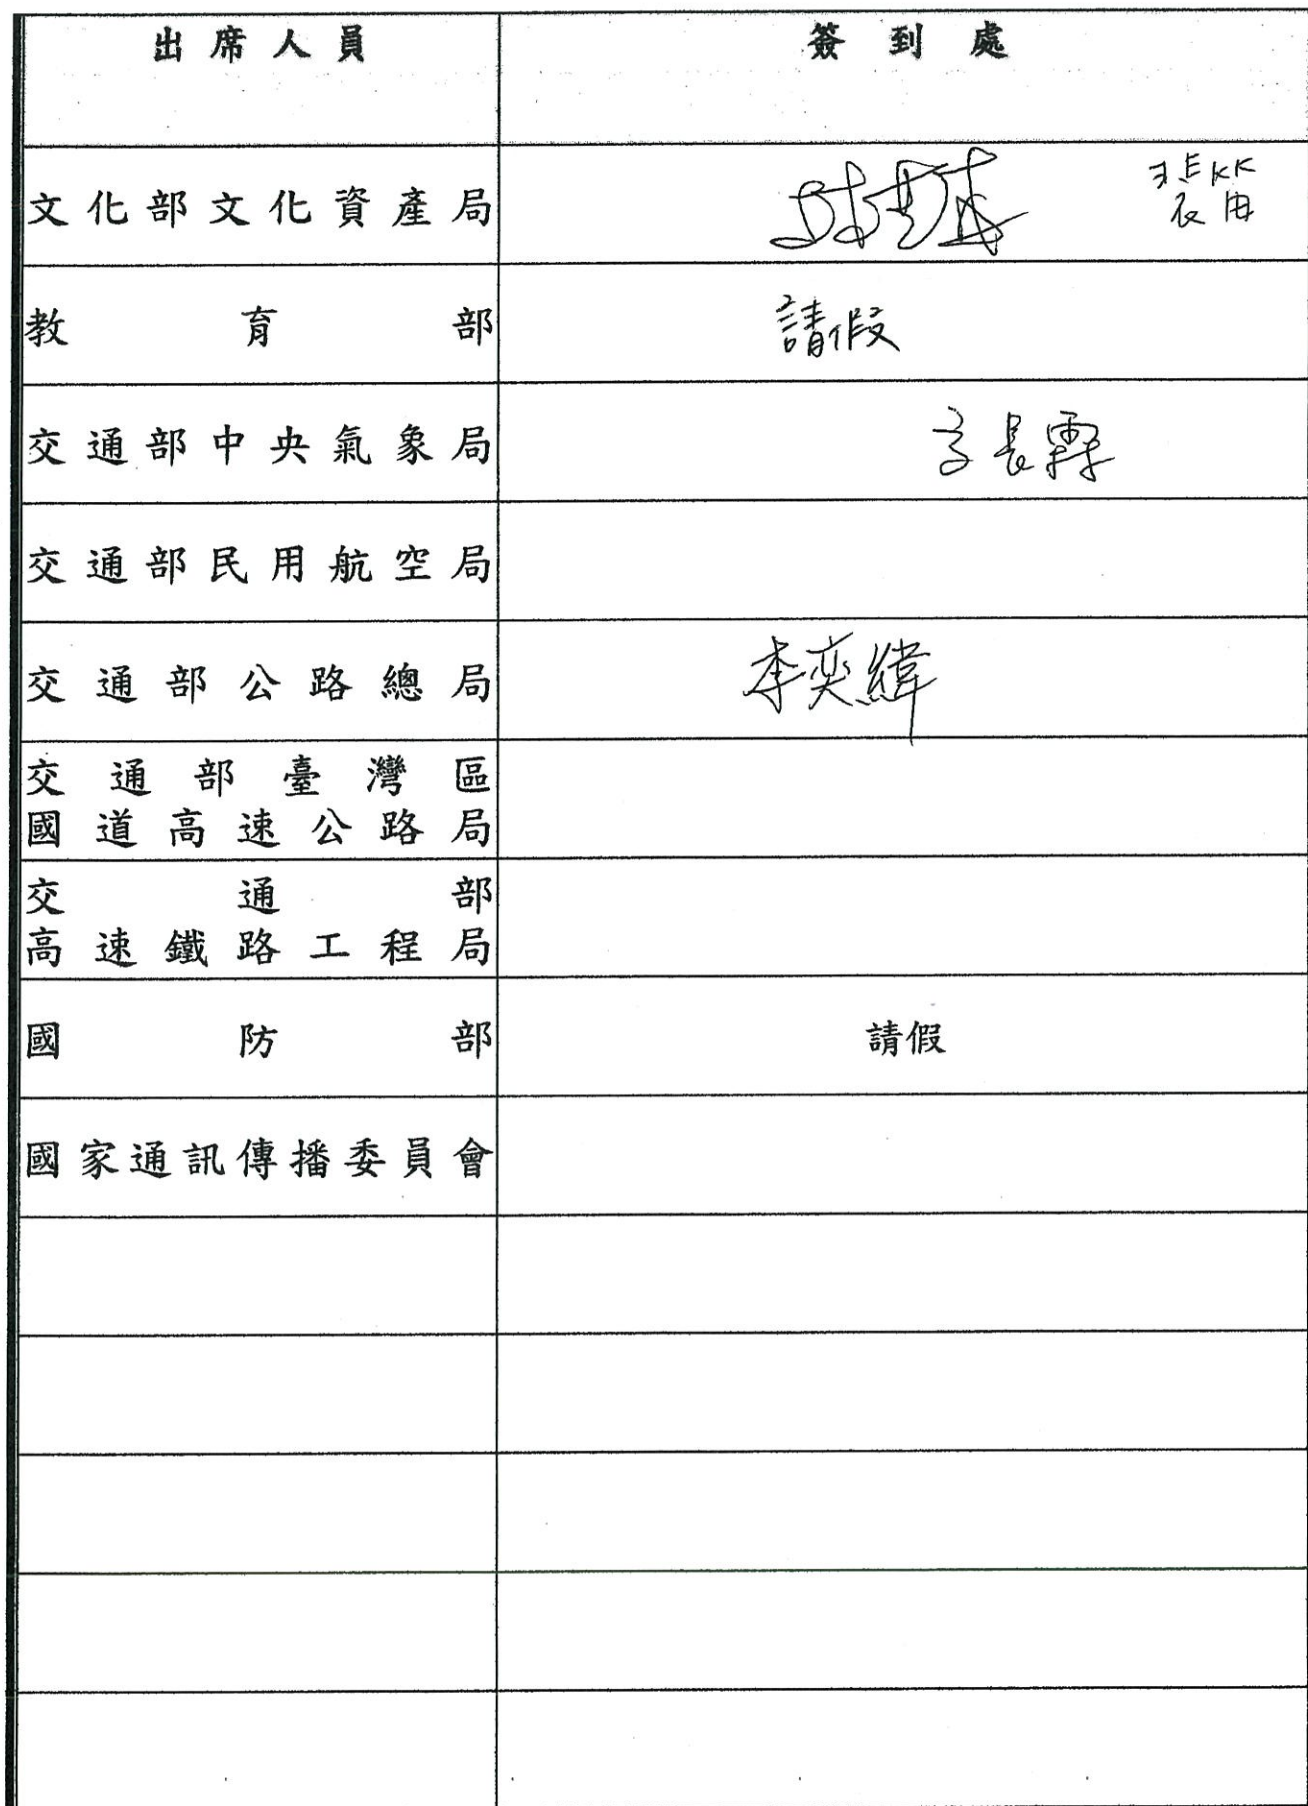 出席人員 簽到處
文化部文化資產局
教育部 請假
交通部中央氣象局
交通部民用航空局
交通部公路總局 李奕緯
交通部臺灣區
國道高速公路局
交通部
高速鐵路工程局
國防部 請假
國家通訊傳播委員會